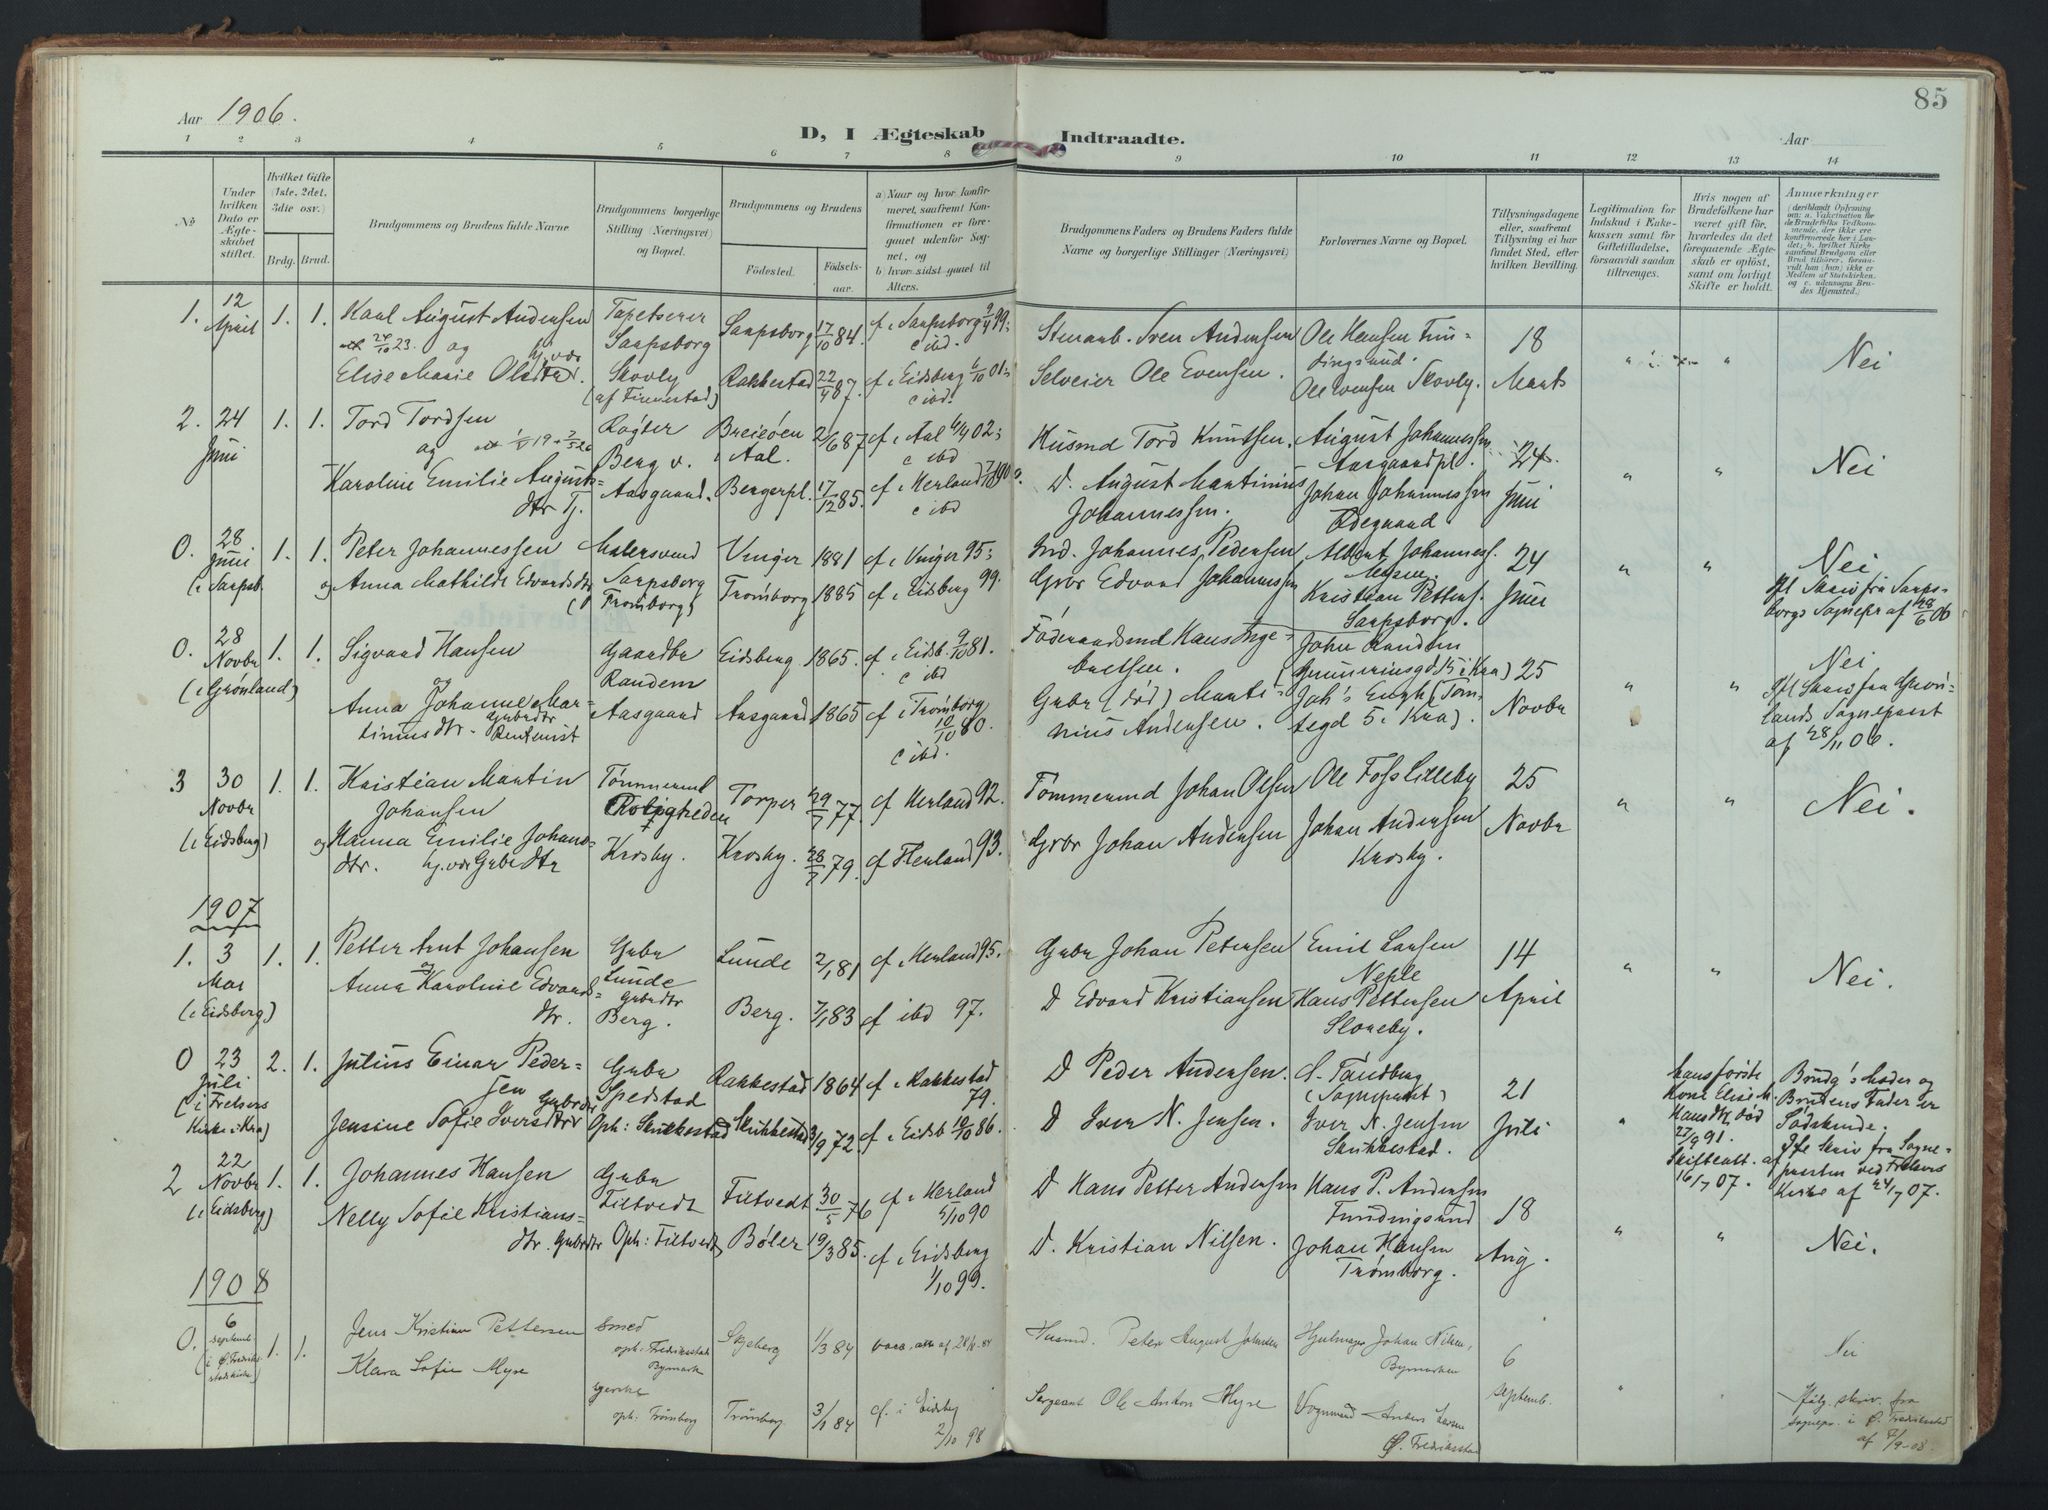 Aar 1906.
85
D, I Ægteskab Indtraadte.
Aar
1 2 3 4 5 6 7 8 9 10 11 12 13 14
No
Under hvilken Dato er Ægteskabet stiftet.
Hvilket Gifte (1ste, 2det, 3die osv.)
Brdg. Brud.
Brudgommens og Brudens fulde Navne
Brudgommens borgerlige Stilling (Næringsvei) og Bopæl.
Brudgommens og Brudens
Födested. Födselsaar.
a) Naar og hvor konfirmeret, saafremt Konfirmationen er foregaaet udenfor Sognet, og
b) hvor sidst gaaet til Alters.
Brudgommens Faders og Brudens Faders fulde Navne og borgerlige Stillinger (Næringsvei)
Forlovernes Navne og Bopæl.
Tillysningsdagene eller, saafremt Tillysning ei har fundet Sted, efter hvilken Bevilling.
Legitimation for Indskud i Enkekassen samt for Giftetilladelse, forsaavidt saadan tiltrænges.
Hvis nogen af Brudefolkene har været gift för, hvorledes da det foregaaende Ægteskab er oplöst, samt om lovligt Skifte er holdt.
Anmærkninger
(deriblandt Oplysning om: a. Vakcination for de Brudefolks Vedkommende, der ikke ere konfirmerede her i Landet; b. hvilket Kirkesamfund Brudgom eller Brud tilhörer, forsaavidt han (hun) ikke er Medlem af Statskirken, og c. udensogns Brudes Hjemsted.)
1. 12 April 1. 1. Karl August Andersen Tapetserer Sarpsborg Sarpsborg 17/10 84. cf i Sarpsborg 9/4 99; c ibd. Stenarb. Sven Andersen Ole Hansen Fundingsrud. 18 Marts " " Nei
att 24/10 23. og
Elise Marie Olsdtr. hj. vær Skovly (af Finnestad) Rakkestad 22/4 87. cf i Eidsberg 6/10 01; c ibd. Selveier Ole Evensen. Ole Evensen Skovly.
2. 24 Juni 1. 1. Tord Tordsen Røgter Berg v. Breieøen i Aal. 2/6 87 cf i Aal 6/4 02; c ibd Husmd Tord Knutsen. August Johannessen Aasgaardpl. 24. Juni " " Nei
og att 1/5 19 + 7/5 26
Karoline Emilie Augustsdtr Tj. Aasgaard. Bergerpl. 17/12 85. cf i Herland c ibd D. August Martinius Johannessen. Johan Johannessen Ødegaard
0. 28 Juni (i Sarpsb. 1. 1. Peter Johannessen Malersvend Sarpsborg Vinger 1881 cf i Vinger 95; Ind. Johannes Pedersen Albert Johannesf. Mosen. 24 Juni " " Nei
og Anna Mathilde Edvardsdtr (i Trømborg) Trømborg 1885 cf i Eidsberg 99. Grbr Edvard Johannessen Kristian Pettersf. Sarpsborg.
Ifl Skriv fra Sarpsborgs Sognepr af 28/6 06
0. 28 Novbr (i Grønland) 1. 1. Sigvard Hansen Gaardbr Randem Eidsberg 1865. cf i Eidsb. 9/10 81. c ibd Føderaadsmd Hans Ingebretsen. Johan Randem (Grunerinsgd 15 i Kra) 25 Novbr " " Nei
og
Anna Johanne Martiniusdtr. Gubrdtr Rentenist Aasgaard Aasgaard 1865 cf i Trømborg 10/10 80. c ibd. Gubr (død) Martinius Andersen. Joh's Engh (Tomtegd 5 i Kra).
Ifl Skriv fra Grønlands Sogneprest af 28/11 06.
3 30 Novbr (i Eidsberg) 1. 1. Kristian Martin Johansen Tømmermd Roligheden Torper 29/7 77. cf Herland 92. Tømmermd Johan Olsen Ole Foss Lilleby 25 Novbr " " Nei.
og Hanna Emilie Johansdtr. hj. vær Grbrdtr Krosby. Krosby. 28/7 79. cf Herland 93. Grbr Johan Andersen Johan Andersen Krosby.
1907
1. 3 Mai (i Eidsberg) 1. 1. Petter Arnt Johansen Grbr Lunde Lunde 2/1 81 cf i Herland 95. Grbr Johan Petersen Emil Larsen Neple 14 April " " Nei.
og
Anna Karoline Edvardsdtr. Grbrdtr Berg. Berg. 7/1 83 cf ibd 97. D Edvard Kristiansen Hans Pettersen Sloreby.
0 23 Juli (i Frelsers Kirke i Kra) 2. 1. Julius Einar Pedersen Grbr Spedstad Rakkestad 1864 cf i Rakkestad 79. D Peder Andersen. Tandberg (Sogneprest) 21 Juli "
Jensine Sofie Iversdtr Grbrdtr Oph: Skukkestad Skukkestad 3/9 72. cf i Eidsb 10/10 86. D Iver N. Jensen. Iver N. Jensen Skukkestad.
hans første Kone Elise M. Hansdtr død 27/9 91. Skifteatt. af 16/7 07.
Brudg's Moder og Brudens Fader er Sødskende. Ifl Skriv fra Sognepresten ved Frelsers Kirke af 24/7 07.
2 22 Novbr (i Eidsberg) 1. 1. Johannes Hansen Grbr Filtvedt Filtvedt 30/5 76 cf i Herland 5/10 90 D Hans Petter Andersen Hans P. Andersen Fundingsrud 18 Aug. " " Nei.
Nelly Sofie Kristiansdtr. Grbrdtr Oph: Filtvedt Bøler 19/3 85. cf i Eidsberg 1/10 99. D. Kristian Nilsen. Johan Hansen Trømborg.
1908
0. 6 septemb. (i Ø. Fredrikstads kirke) 1. 1. Jens Kristian Pettersen Smed oph: Fredriksstads Bymark Skjeberg 1/3 84 vacc. att. af Husmd. Peter August Johansen Hjulmager Johan Nilsen, Bymarken 6 septemb. " Nei
Klara Sofie Myre oph: Trømborg Trømborg. 3/1 84 cf. i Eidsbg 2/10 98 Sergeant Ole Anton Myre Vognmand Anders Larsen Ø. Fredriksstad
Ifølg. skriv. fra sognepr. i Ø. Fredriksstad af 7/9-08.